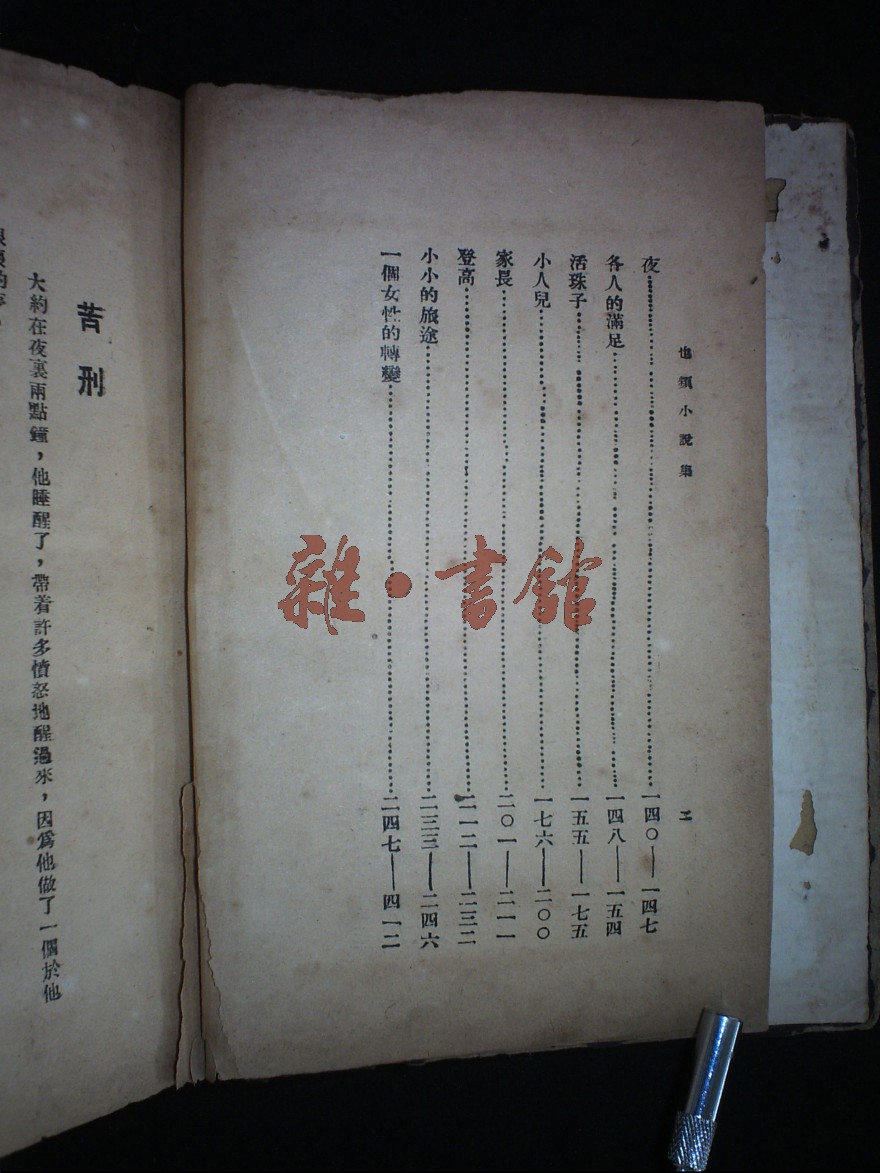 也頻小說集
二
夜 一四〇——一四七
各人的滿足 一四八——一五四
活珠子 一五五——一七五
小人兒 一七六——二〇〇
家長 二〇一——二一一
登高 二一二——二三二
小小的旅途 二三三——二四六
一個女性的轉變 二四七——四一二
苦刑
大約在夜裏兩點鐘，他睡醒了，帶着許多憤怒地醒過來，因爲他做了一個於他
雜·書館